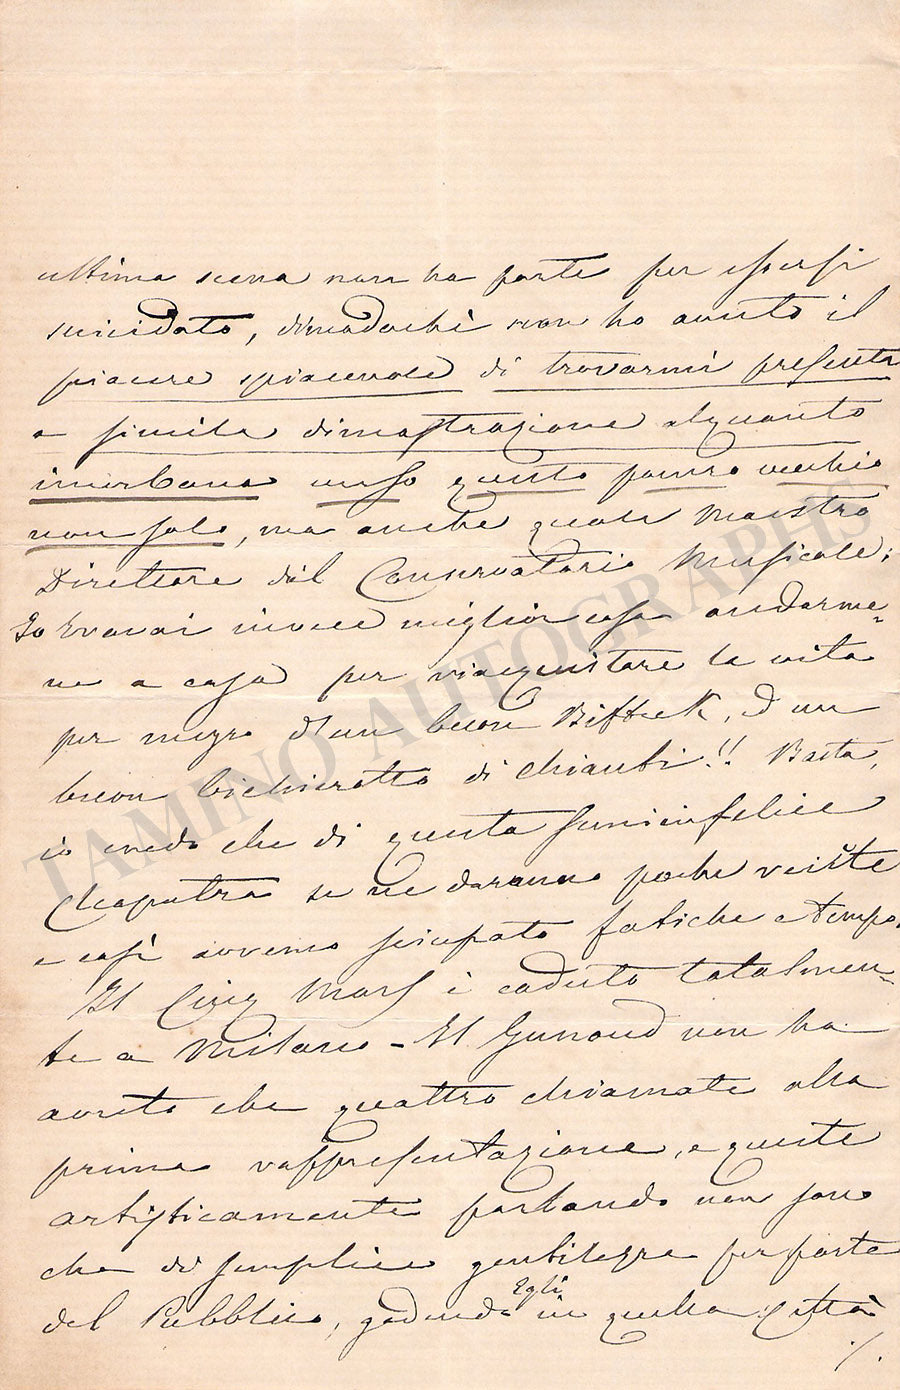 ultima scena non ha parte per essersi
suicidato, dimodochè non ho avuto il
piacere spiacevole di trovarmi presente
a simile dimostrazione alquanto
inurbana verso questo povero vecchio
non solo, ma anche quale Maestro
Direttore del Conservatorio Musicale;
Io trovai invece miglior cosa andarme=
ne a casa per riacquistare la vita
per mezzo d'un buon Bifteck, d un
buon bichierotto di Chianti!! Basta,
io credo che di questa suninfelice
Cleopatra se ne daranno poche recite
e così avremo sciupato fatiche e tempo.
Il Cinq Mars è caduto totalmen=
te a Milano - Il Gunoud non ha
avuto che quattro chiamate alla
prima rappresentazione, e queste
artisticamente parlando non sono
che di semplice gentilezza per parte
del Pubblico, godendo Egli in quella Città
./.
TAMINO AUTOGRAPHS